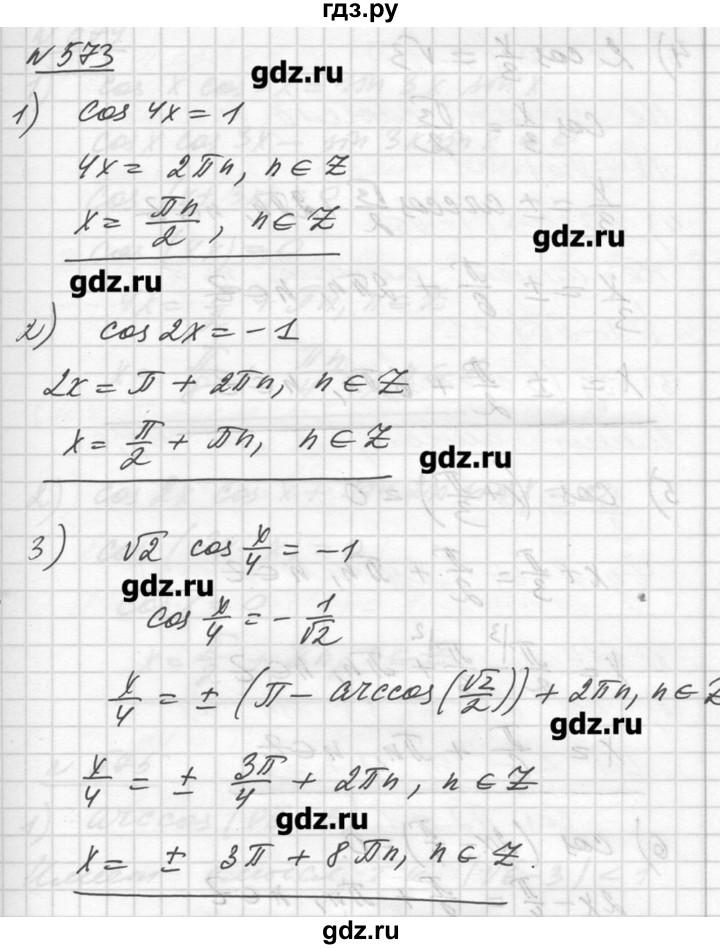 гдз.ру
№573
gdz.ru
1) cos 4x = 1
4x = 2πn, n ∈ Z
x = πn/2, n ∈ Z
gdz.ru
gdz.ru
2) cos 2x = -1
2x = π + 2πn, n ∈ Z
x = π/2 + πn, n ∈ Z
gdz.ru
3) √2 cos x/4 = -1
gdz.ru
cos x/4 = - 1/√2
x/4 = ± (π - arccos(√2/2)) + 2πn, n ∈ Z
gdz.ru
x/4 = ± 3π/4 + 2πn, n ∈ Z
gdz.ru
x = ± 3π + 8πn, n ∈ Z.
gdz.ru